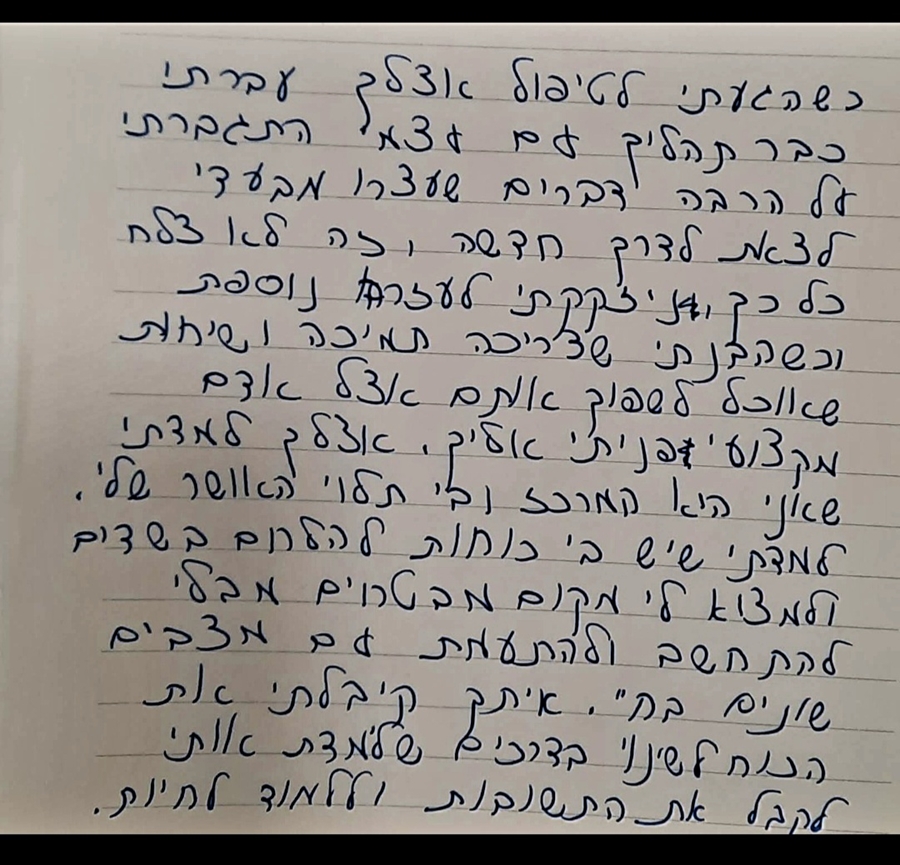 כשהגעתי לטיפול אצלך עברתי
כבר תהליך עם עצמי התגברתי
על הרבה דברים שעצרו מבעדי
לצאת לדרך חדשה וזה לא צלח
כל כך, ונזקקתי לעזרה נוספת
וכשהבנתי שצריכה תמיכה ושיחות
שאוכל לשפוך אותם אצל אדם
מקצועי פניתי אליך. אצלך למדתי
שאני היא המרכז ובי תלוי האושר שלי.
למדתי שיש בי כוחות להלחם בשדים
ולמצוא לי מקום מבלי
להתחשב ולהתעמת עם מצבים
שונים בח". איתך קיבלתי את
הכוח לשינוי בדרכים שלימדת אותי
לקבל את התשובות וללמוד לחיות.